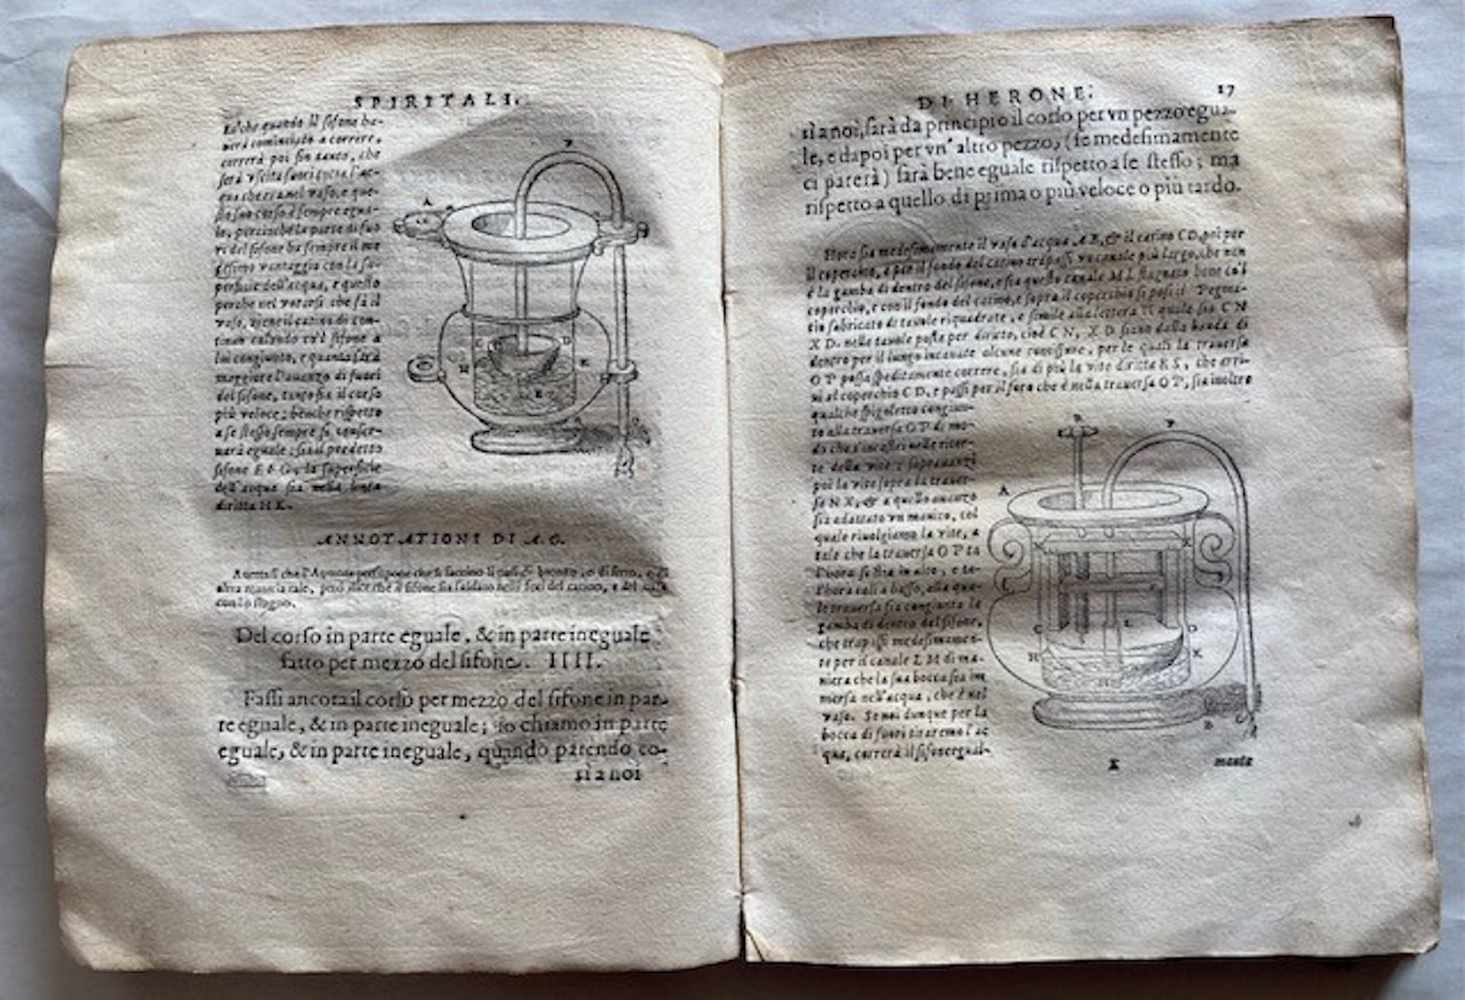 SPIRITALI.
che quando il sifone ha-
verà cominciato a correre,
correrà poi fin tanto, che
serà vscita fuori tutta l'ac-
qua che era nel vaso, e que-
sto suo corso è sempre egua-
le, percioche la parte di fuo
ri del sifone ha sempre il me
desimo vantaggio con la su-
perficie dell'acqua, e questo
perche nel votarsi che fà il
vaso, viene il catino di con-
tinuo calando co'l sifone a
lui congiunto, e quanto serà
maggiore l'auanzo di fuori
del sifone, tanto fia il corso
più veloce; benche rispetto
a se stesso sempre si conser-
uarà eguale; sia il predetto
sifone E F G, la superficie
dell'acqua sia nella linea
diritta H K.
A
C
D
H
K
ANNOTATIONI DI A.G.
che l'Autore che si faccino li vasi di bronzo, o di ferro, o
altra materia tale, però dice che il sifone sia saldato nelli fori del catino, e del
con lo stagno.
Del corso in parte eguale, & in parte ineguale
fatto per mezzo del sifone. IIII.
Fassi ancora il corso per mezzo del sifone in par-
te eguale, & in parte ineguale; io chiamo in parte
eguale, & in parte ineguale, quando parendo co-
sì a noi
DI HERONE. 17
sì a noi, sarà da principio il corso per vn pezzo egua-
le, e dapoi per vn' altro pezzo, (se medesimamente
ci parerà) sarà bene eguale rispetto a se stesso; ma
rispetto a quello di prima o più veloce o più tardo.
Hora sia medesimamente il vaso d'acqua A B, & il catino C D, poi per
il coperchio, e per il fondo del catino trapassi vn canale più largo, che non
è la gamba di dentro del sifone, e sia questo canale M L stagnato bene co'l
coperchio, e con il fondo del catino, e sopra il coperchio si posi il Pegma-
tio fabricato di tauole riquadrate, e simile alla lettera π quale sia C N
X D. nelle tauole poste per diritto, cioè C N, X D siano dalla banda di
dentro per il lungo incauate alcune comissure, per le quali la trauersa
O P possa speditamente correre, sia di più la vite diritta R S, che arri-
ui al coperchio C D, e passi per il foro che è nella trauersa O P, sia inoltre
qualche spigoletto congiun-
to alla trauersa O P di mo-
do che s'incastri nelle ritor-
te della vite e sopranzi
poi la vite sopra la trauer-
sa N X, & a quello auanzo
sia adattato vn manico, col
quale riuolgiamo la vite, a
tale che la trauersa O P ta
l'hora si stia in alto, e ta-
l'hora cali a basso, alla qua-
le trauersa sia congiunta la
gamba di dentro del sifone,
che trapassi medesimamen-
te per il canale L M di ma-
niera che la sua bocca sia im
mersa nell'acqua, che è nel
vaso. Se noi dunque per la
bocca di fuori tiraremo l'ac
qua, correrà il sifone egual-
R
P
A
X
L
C
D
H
K
B
E
mente